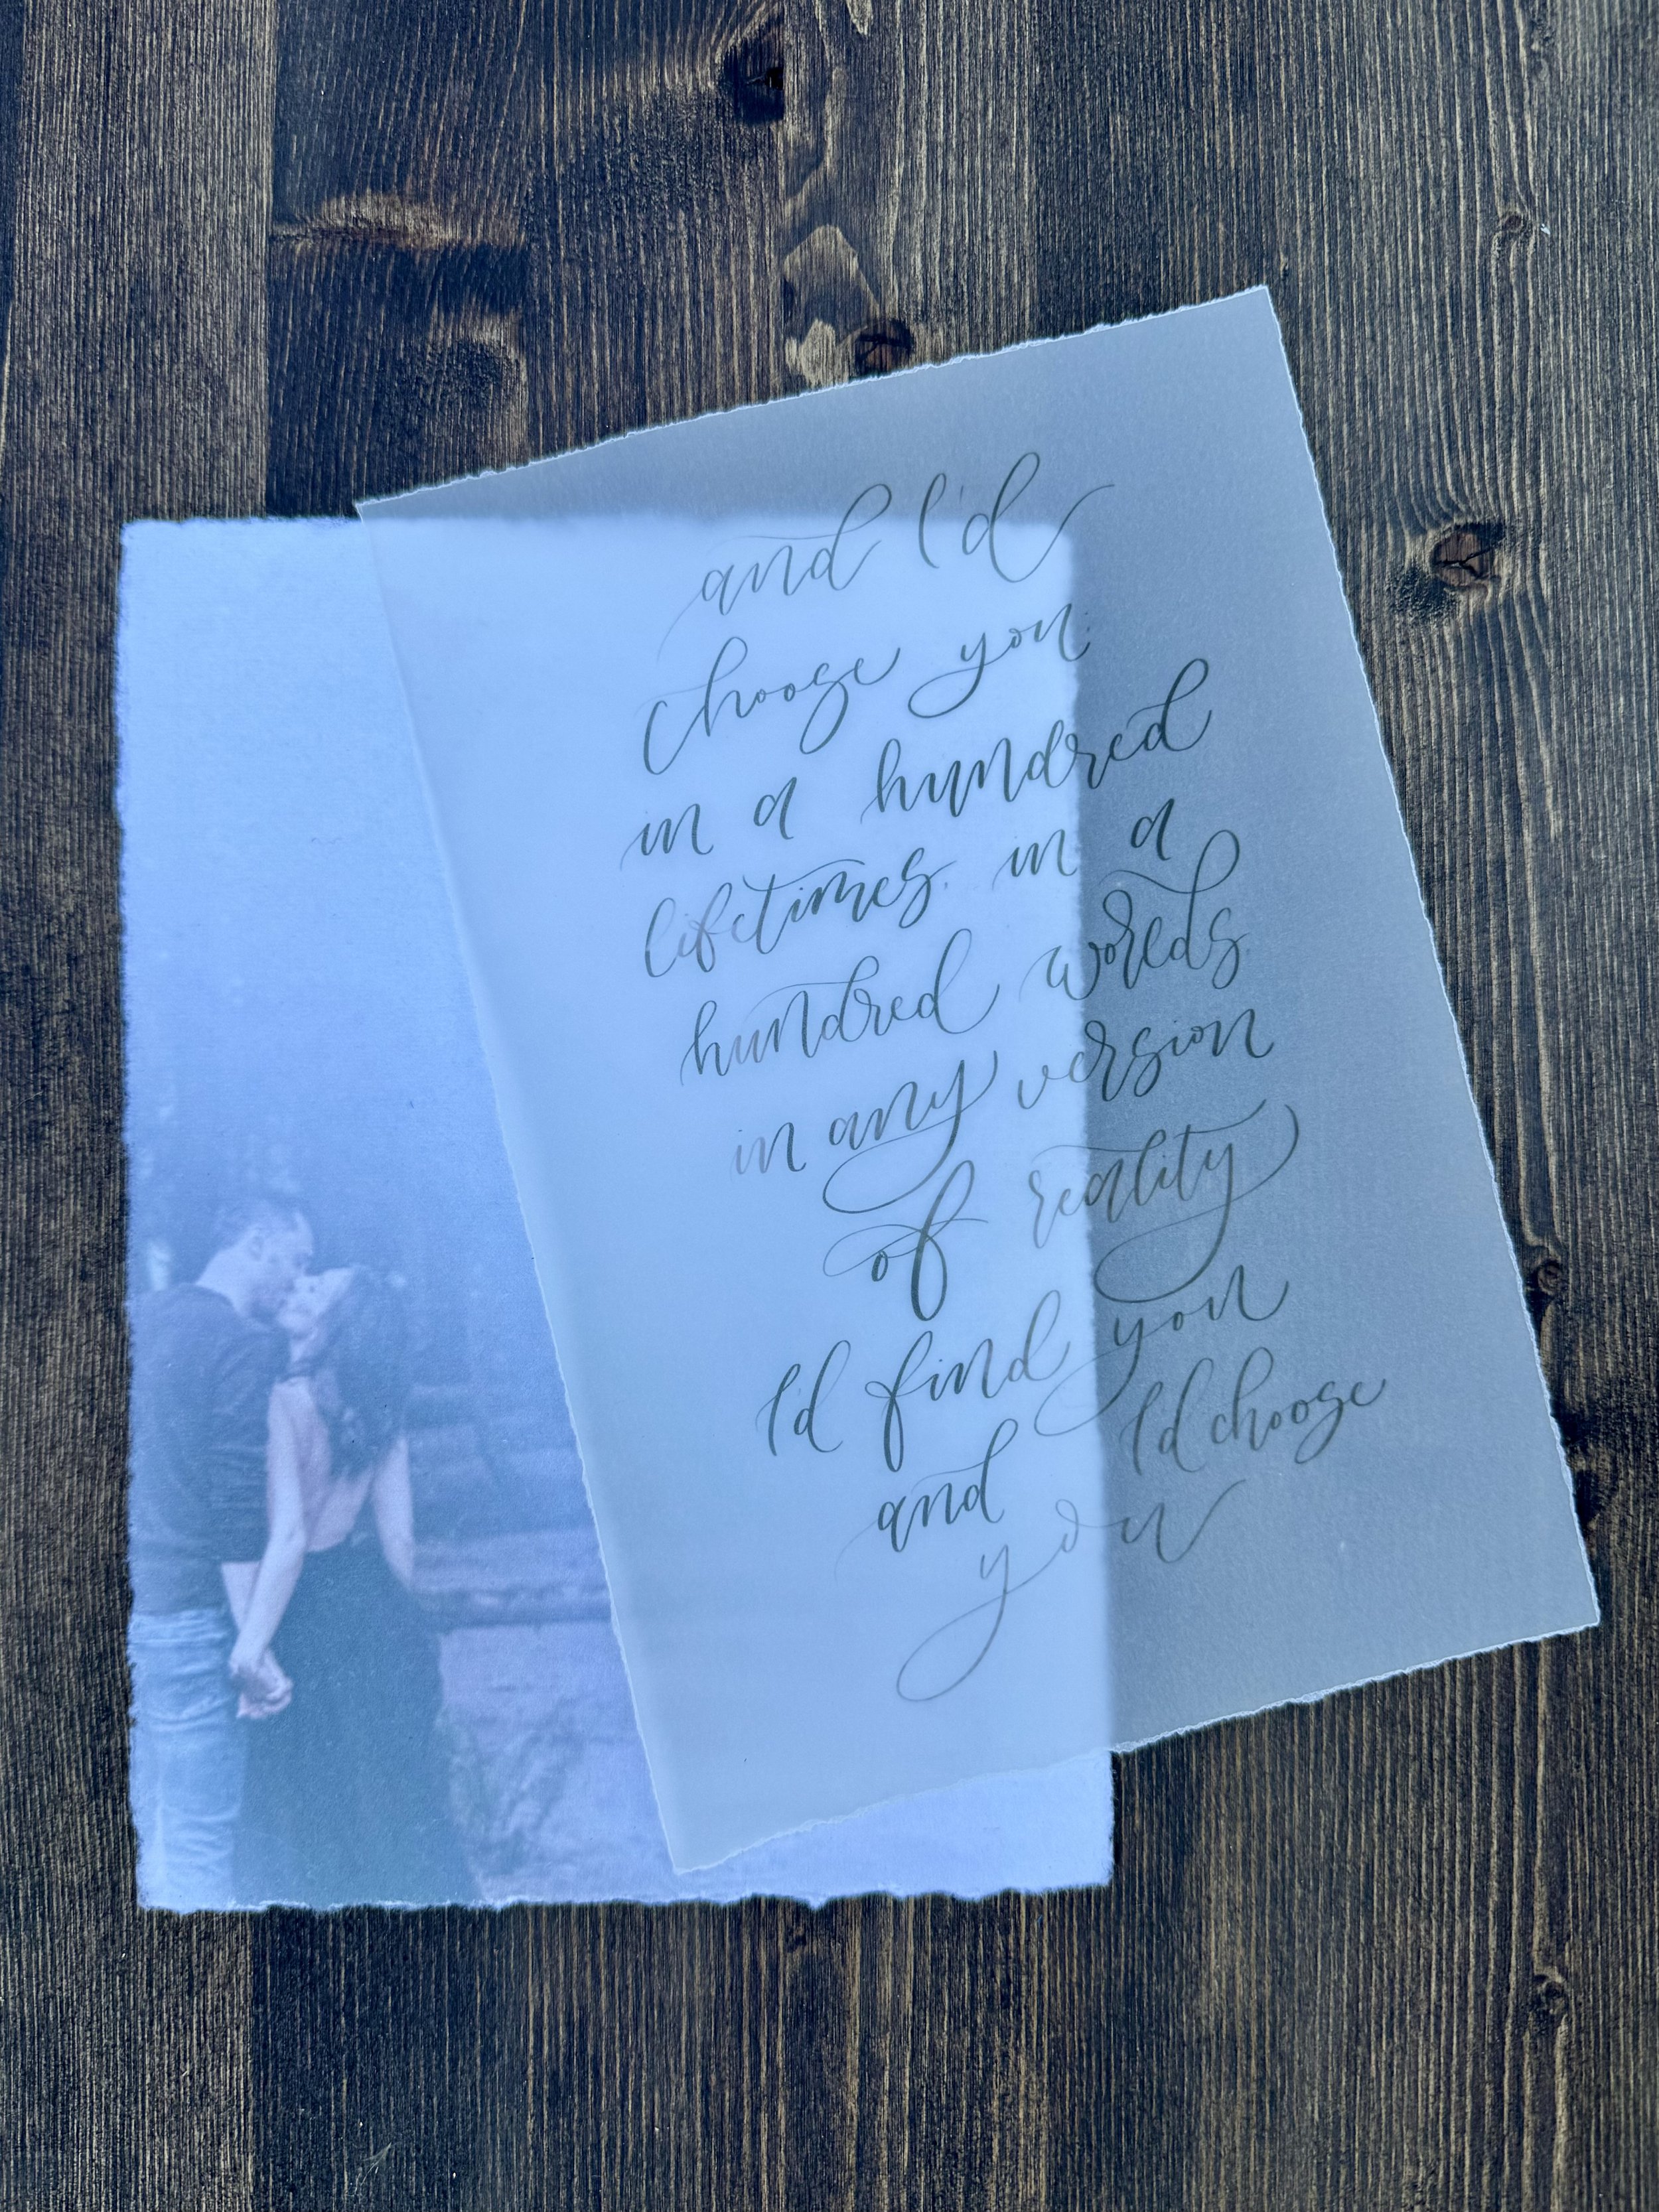 and I'd
choose you;
in a hundred
lifetimes, in a
hundred worlds,
in any version
of reality
I'd find you
and I'd choose
you